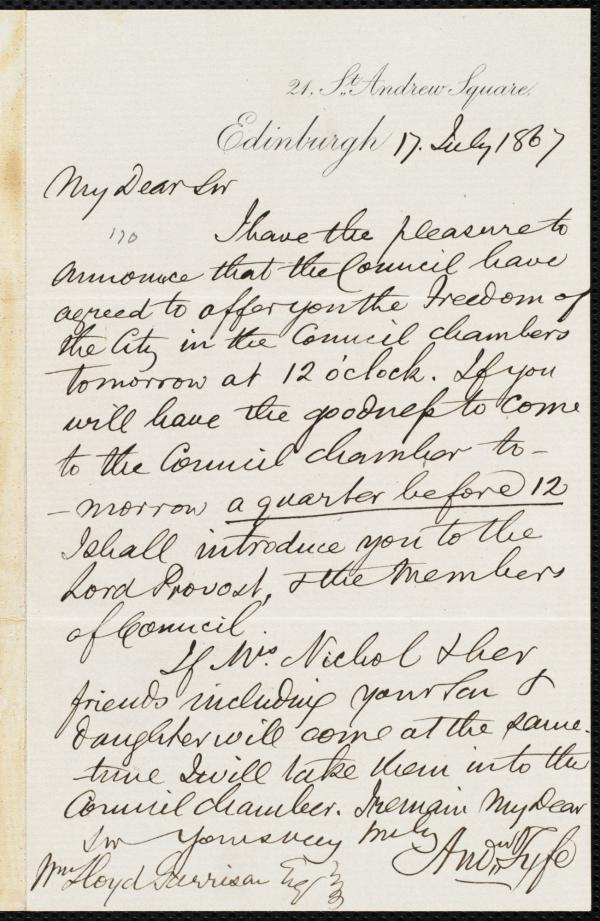 21, St. Andrew Square,
Edinburgh 17. July 1867
My Dear Sir
170
I have the pleasure to
announce that the Council have
agreed to offer you the Freedom of
the City in the Council chambers
tomorrow at 12 o'clock. If you
will have the goodness to come
to the Council chamber to-
-morrow a quarter before 12
I shall introduce you to the
Lord Provost, & the Members
of Council.
If Mrs. Nichol & her
friends including your Son &
daughter will come at the same
time I will take them into the
Council chamber. I remain My Dear
Sir Yours very truly
Andw Fyfe
Wm Lloyd Garrison Esq